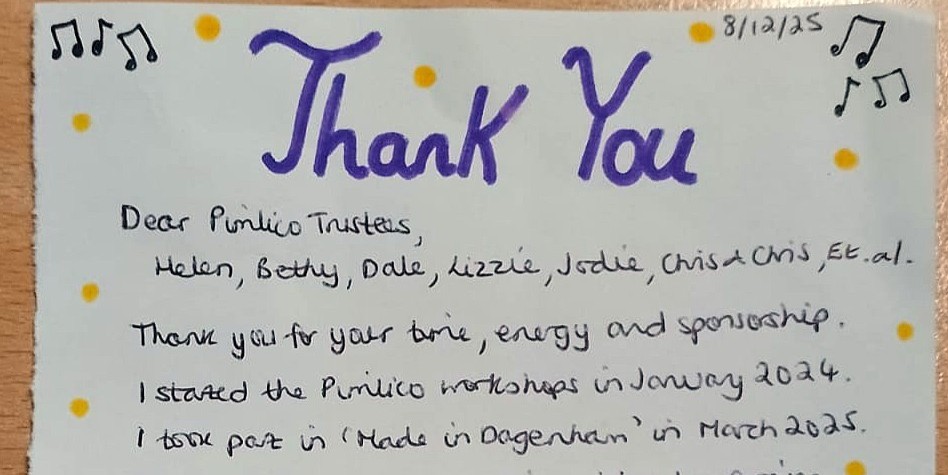 8/12/25
Thank You
Dear Pimlico Trustees,
Helen, Bethy, Dale, Lizzie, Jodie, Chris & Chris, Et.al.
Thank you for your time, energy and sponsorship.
I started the Pimlico workshops in January 2024.
I took part in 'Made in Dagenham' in March 2025.